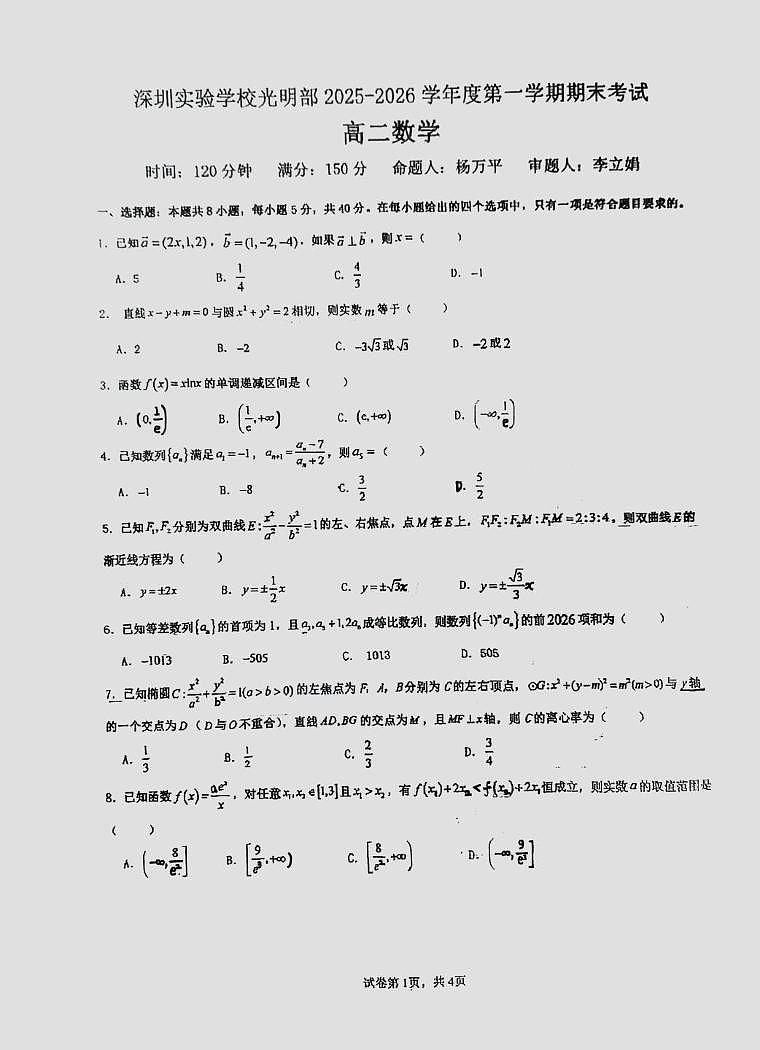 深圳实验学校光明部 2025-2026 学年度第一学期期末考试
高二数学
时间：120 分钟 满分：150 分 命题人：杨万平 审题人：李立娟
一、选择题：本题共 8 小题，每小题 5 分，共 40 分。在每小题给出的四个选项中，只有一项是符合题目要求的。
1. 已知 a⃗=(2x,1,2)，b⃗=(1,-2,-4)，如果 a⃗⊥b⃗，则 x=（ ）
A. 5 B. 1/4 C. 4/3 D. -1
2. 直线 x-y+m=0 与圆 x²+y²=2 相切，则实数 m 等于（ ）
A. 2 B. -2 C. -3√3 或 √3 D. -2 或 2
3. 函数 f(x)=xlnx 的单调递减区间是（ ）
A. (0,1/e) B. (1/e,+∞) C. (e,+∞) D. (-∞,1/e)
4. 已知数列{aₙ}满足 a₁=-1，aₙ₊₁=(aₙ-7)/(aₙ+2)，则 a₅=（ ）
A. -1 B. -8 C. 3/2 D. 5/2
5. 已知 F₁,F₂ 分别为双曲线 E:x²/a²-y²/b²=1 的左、右焦点，点 M 在 E 上，F₁F₂:F₂M:F₁M=2:3:4，则双曲线 E 的
渐近线方程为（ ）
A. y=±2x B. y=±1/2x C. y=±√3x D. y=±√3/3x
6. 已知等差数列{aₙ}的首项为 1，且 a₂,a₄+1,2a₆ 成等比数列，则数列{(-1)ⁿaₙ}的前 2026 项和为（ ）
A. -1013 B. -505 C. 1013 D. 505
7. 已知椭圆 C:x²/a²+y²/b²=1(a>b>0) 的左焦点为 F，A，B 分别为 C 的左右顶点，⊙G:x²+(y-m)²=m²(m>0) 与 y 轴
的一个交点为 D（D 与 O 不重合），直线 AD,BG 的交点为 M，且 MF⊥x 轴，则 C 的离心率为（ ）
A. 1/3 B. 1/2 C. 2/3 D. 3/4
8. 已知函数 f(x)=aeˣ/x，对任意 x₁,x₂∈[1,3] 且 x₁>x₂，有 f(x₁)+2x₂<f(x₂)+2x₁ 恒成立，则实数 a 的取值范围是
（ ）
A. (-∞,8/e²] B. [9/e³,+∞) C. [8/e²,+∞) D. (-∞,9/e³]
试卷第 1页，共 4页